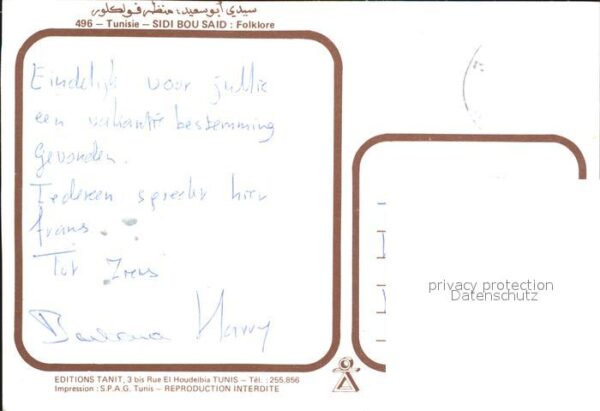 سيدي أبو سعيد: منظر فولكلور
496 – Tunisie – SIDI BOU SAID : Folklore
Eindelijk voor jullie
een vakantie bestemming
gevonden.
Iedereen spreekt hier
frans.
Tot Ziens
Barbara Harry
privacy protection
Datenschutz
EDITIONS TANIT, 3 bis Rue El Houdeibia TUNIS – Tél. : 255.856
Impression : S.P.A.G. Tunis – REPRODUCTION INTERDITE